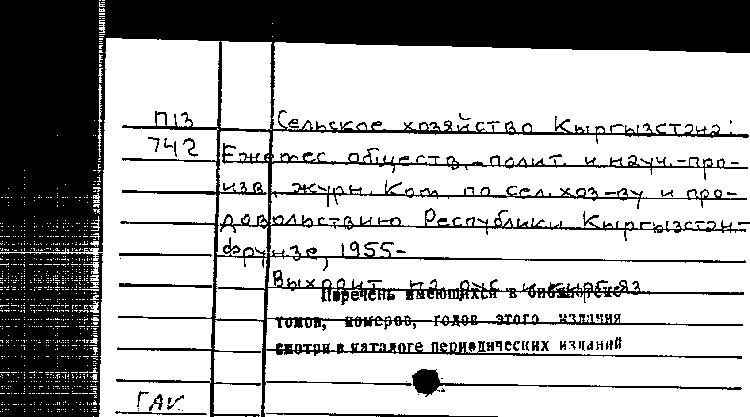 П13
742
Сельское хозяйство Кыргызстана:
Ежемес. обществ.-полит. и науч.-про-
изв. журн. Ком. по сел. хоз-ву и про-
довольствию Республики Кыргызстан.-
Фрунзе, 1955-
Выходит на рус. и кирг. яз.
Перечень имеющихся в библиотеке
томов, номеров, годов этого издания
смотри в каталоге периодических изданий
ГАИ